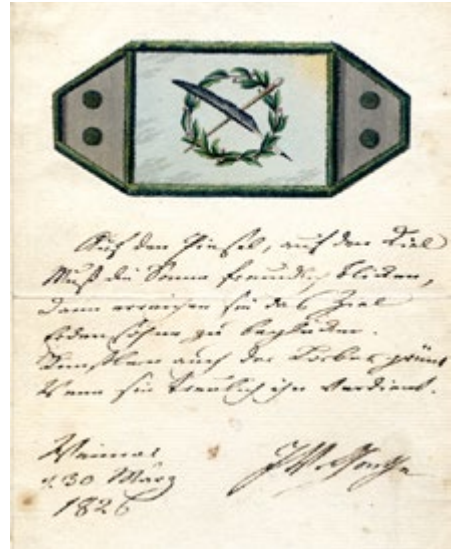 Auf den Pinsel, auf den Kiel
Muß die Sonne freundlich blicken,
Dann erreichen sie das Ziel
Erdensöhne zu beglücken.
Künstlern auch der Lorbeer grünt
Wenn sie treulich ihn verdient.
Weimar
d. 30 März
1826
JWvGoethe